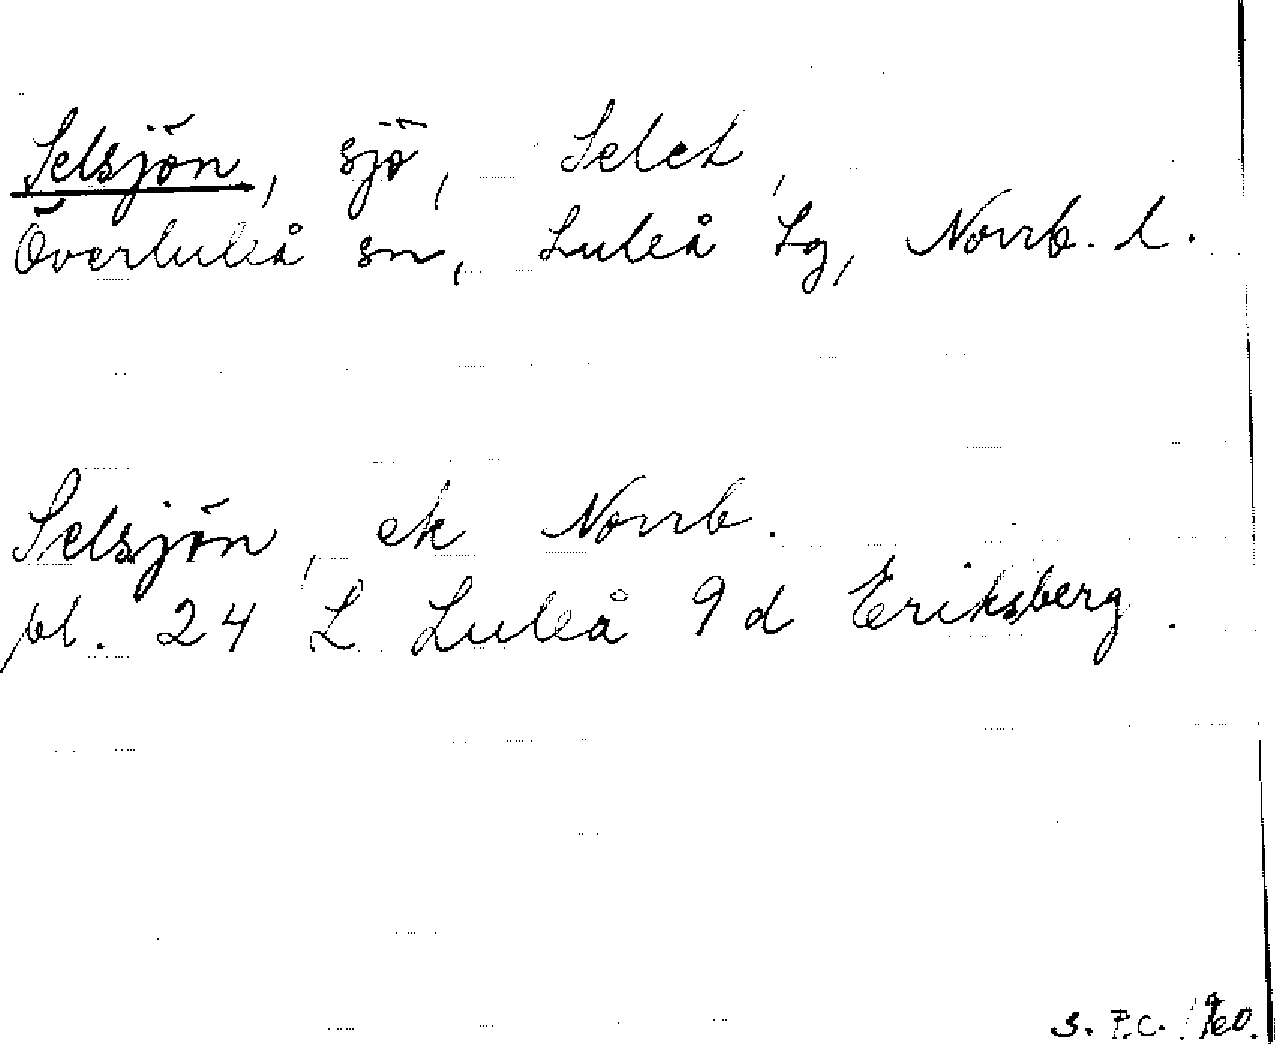 Selsjön, sjö, Selet,
Överluleå sn, Luleå tg, Norrb. l.
Selsjön, ek Norrb.
bl. 24 L Luleå 9d Eriksberg.
S. P.C.